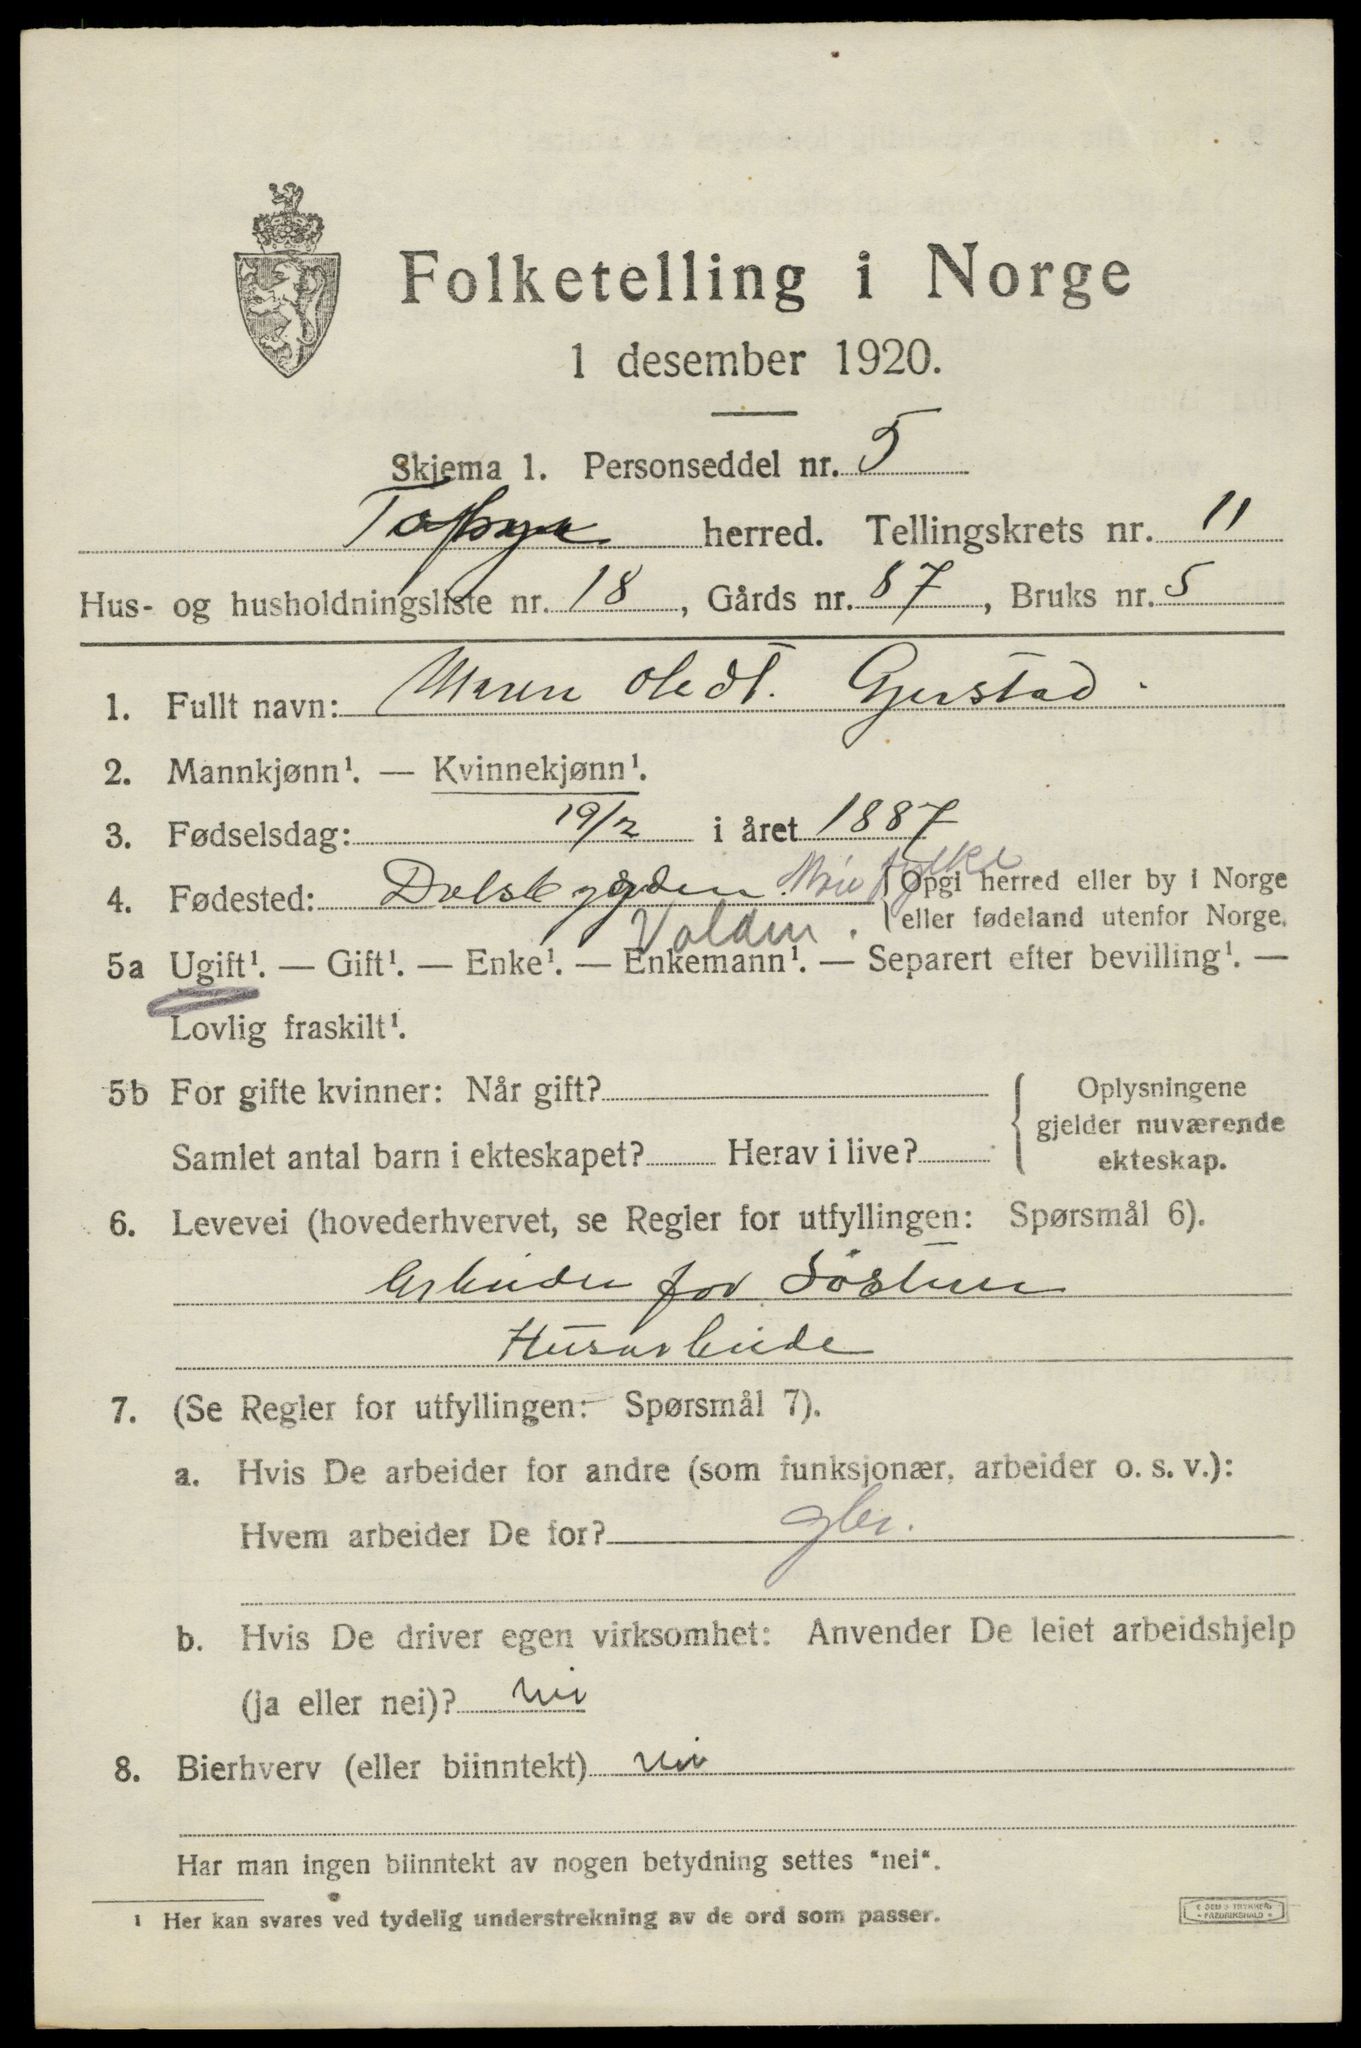 Folketelling i Norge
1 desember 1920.
Skjema 1. Personseddel nr. 5
herred. Tellingskrets nr. 11
Hus- og husholdningsliste nr. 18, Gårds nr. 87, Bruks nr. 5
1. Fullt navn: Maren Gjerstad.
2. Mannkjønn¹. — Kvinnekjønn¹.
3. Fødselsdag: 19/2 i året 1887
4. Fødested: fylke {Opgi herred eller by i Norge
Volden. eller fødeland utenfor Norge.
5a Ugift¹. — Gift¹. — Enke¹. — Enkemann¹. — Separert efter bevilling¹. —
Lovlig fraskilt¹.
5b For gifte kvinner: Når gift? { Oplysningene
gjelder nuværende
Samlet antal barn i ekteskapet? Herav i live? ekteskap.
6. Levevei (hovederhvervet, se Regler for utfyllingen: Spørsmål 6).
Arbeider for Söstren
Husarbeide
7. (Se Regler for utfyllingen: Spørsmål 7).
a. Hvis De arbeider for andre (som funksjonær, arbeider o. s. v.):
Hvem arbeider De for?
b. Hvis De driver egen virksomhet: Anvender De leiet arbeidshjelp
(ja eller nei)? nei
8. Bierhverv (eller biinntekt) nei
Har man ingen biinntekt av nogen betydning settes "nei".
¹ Her kan svares ved tydelig understrekning av de ord som passer.